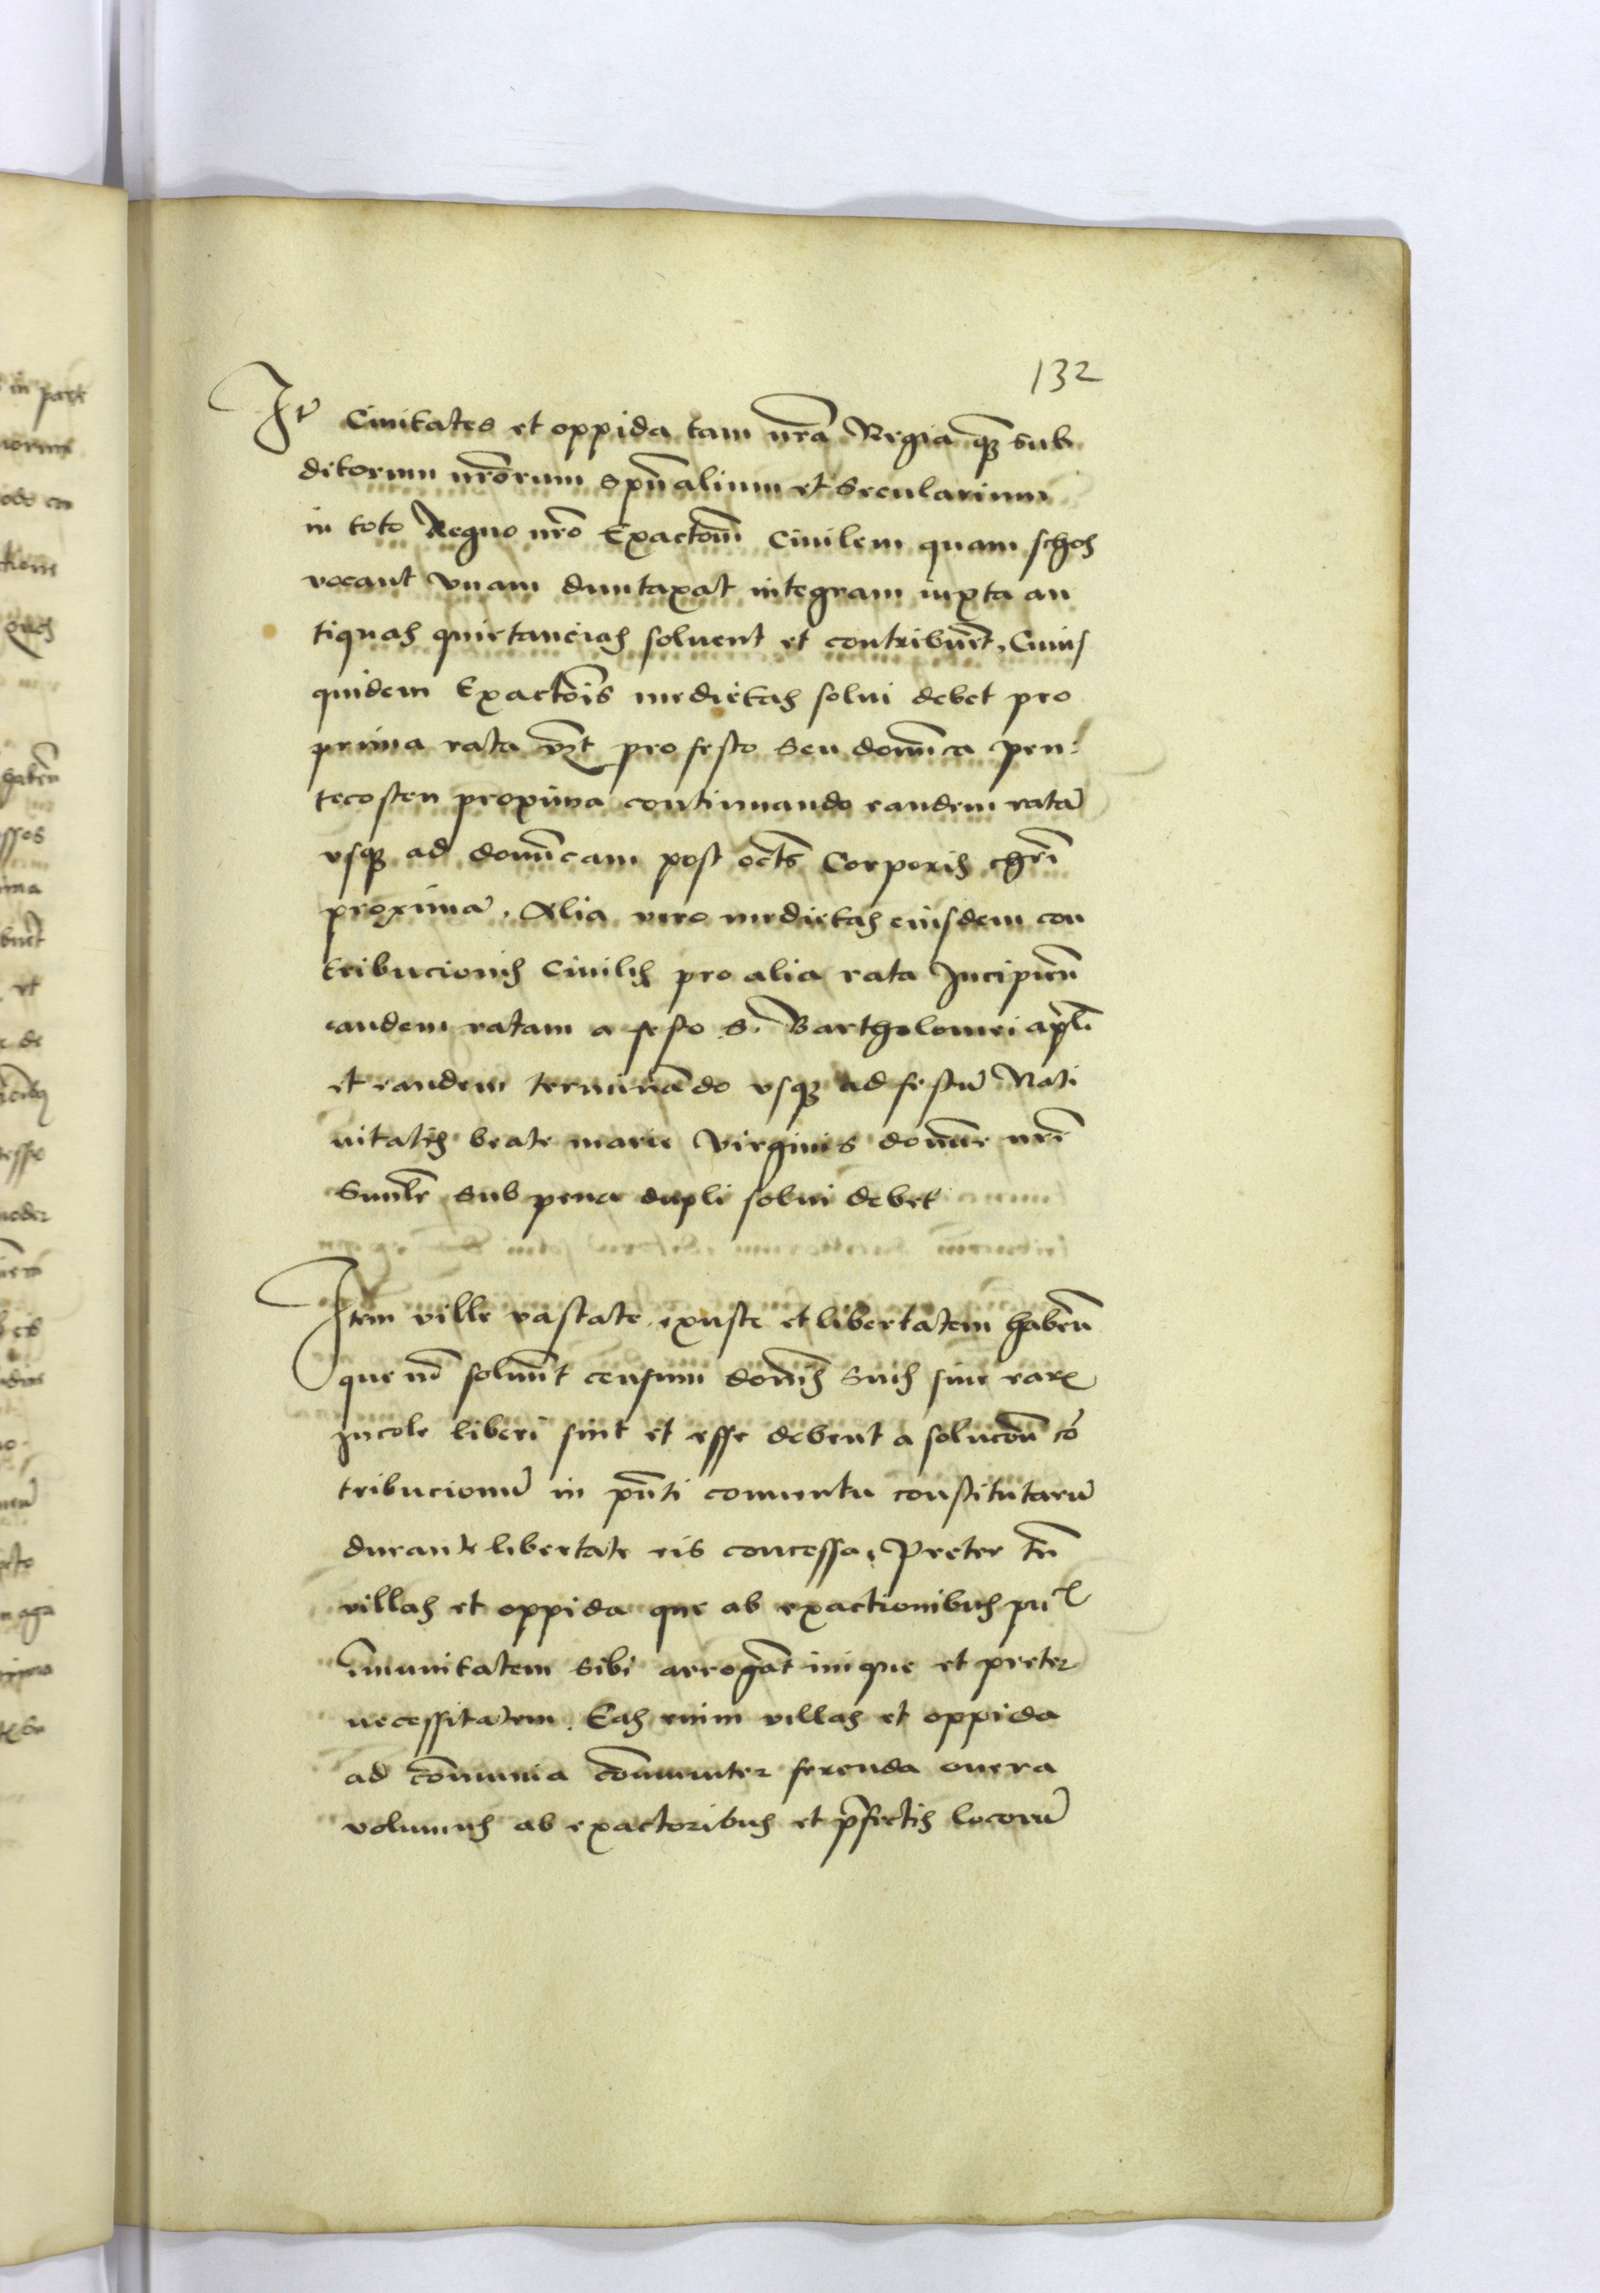 132
Itē Ciuitates et oppida tam nr̄a Regia qȝ sub
ditorum nr̄orum spūalium et Secularium
in toto Regno nr̄o Exactōm Ciuilem quam schos
vocant vnam duntaxat integram iuxta an
tiquas quietancias soluent et contribuēt, Cuius
quidem Exactōis medietas solui debet pro
prima rata vȝt pro festo Seu domīca pen:
tecosten proxima continuando eandem ratā
vsqȝ ad domīcam post octs Corporis chrī
proximā. Alia vero medietas eiusdem con
tribucionis Ciuilis pro alia rata Incipieñ
eandem ratam a festo S. Bartholomei apl̄i
et eandem terminādo vsqȝ ad festū Nati
uitatis beate marie virginis domīe nr̄e
Simlr̄ sub pena dupli solui debet
Item ville vastate exuste et libertatem habeñ
que nō soluūt censum domīs Suis siue earȝ
Incole liberi sint et esse debent a solucōn cō
tribucionū in pn̄ti conuentu constitutarū
durante libertate eis concessa, Preter tn̄
villas et oppida que ab exactionibus
īmunitatem Sibi arrogāt inique et preter
necessitatem. Eas enim villas et oppida
ad cōmunia cōmuniter ferenda onera
volumus ab exactoribus et p̄fectis locorū